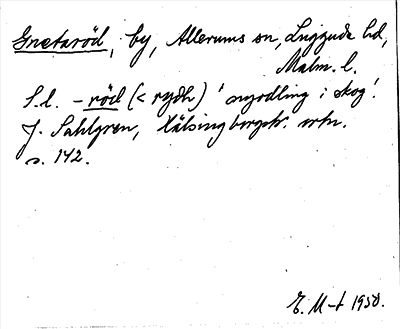 Gnetaröd, by, Allerums sn, Luggude hd,
Malm. l.
S.l. -röd (< rydh) 'nyodling i skog'.
J. Sahlgren, Hälsingborgstr. ortn.
s. 142.
E. M-t 1950.